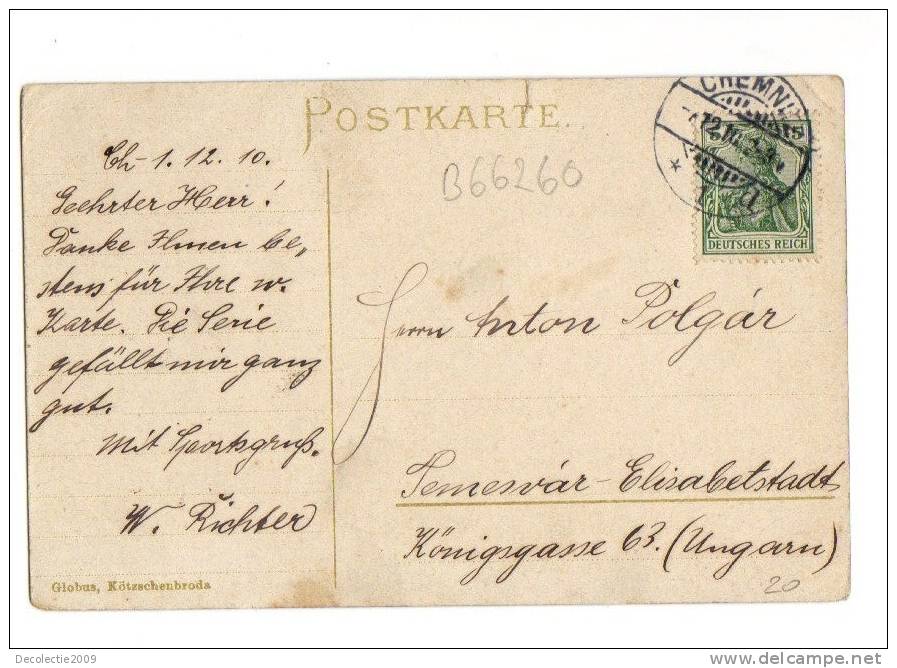 POSTKARTE.
CHEMNI
B66260
DEUTSCHES REICH
Ch-1.12.10.
Geehrter Herr!
Danke Ihnen be„
stens für Ihre w.
Karte. Die Serie
gefällt mir ganz
gut.
Mit Sportsgruß.
W. Richter
Herrn Anton Polgár
Temesvár-Elisabetstadt
Königsgasse 63. (Ungarn)
20
Globus, Kötzschenbroda
Decolectie2009
www.delcampe.net